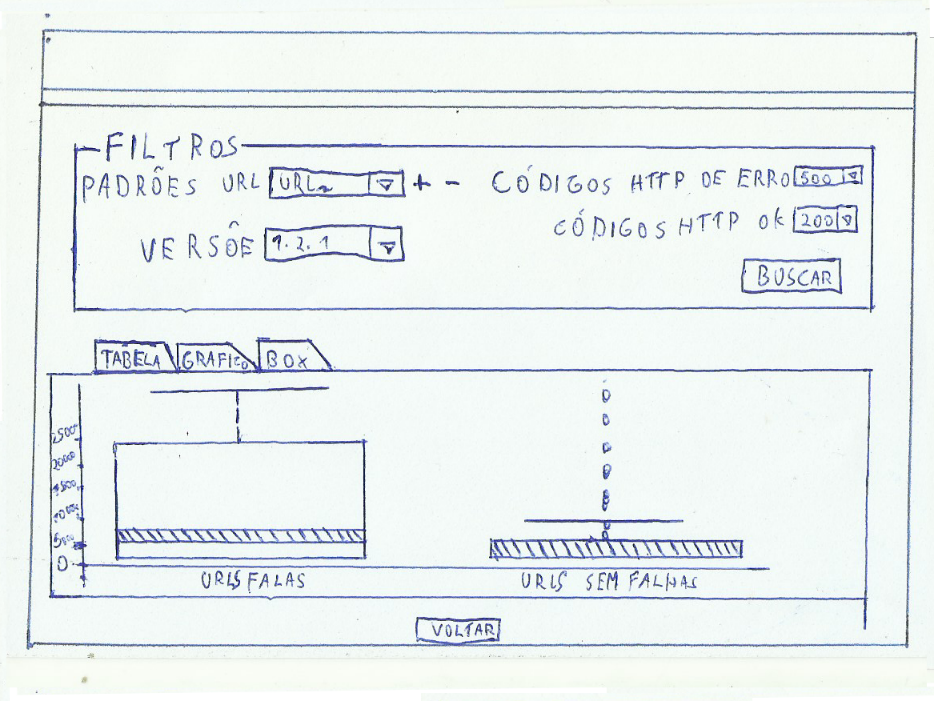 FILTROS
PADRÕES URL URL~ + - CÓDIGOS HTTP DE ERRO 500
VERSÕE 1.2.1 CÓDIGOS HTTP OK 200
BUSCAR
TABELA GRAFICO BOX
2500
20000
1500
5000
0
URLS FALAS URLS SEM FALHAS
VOLTAR